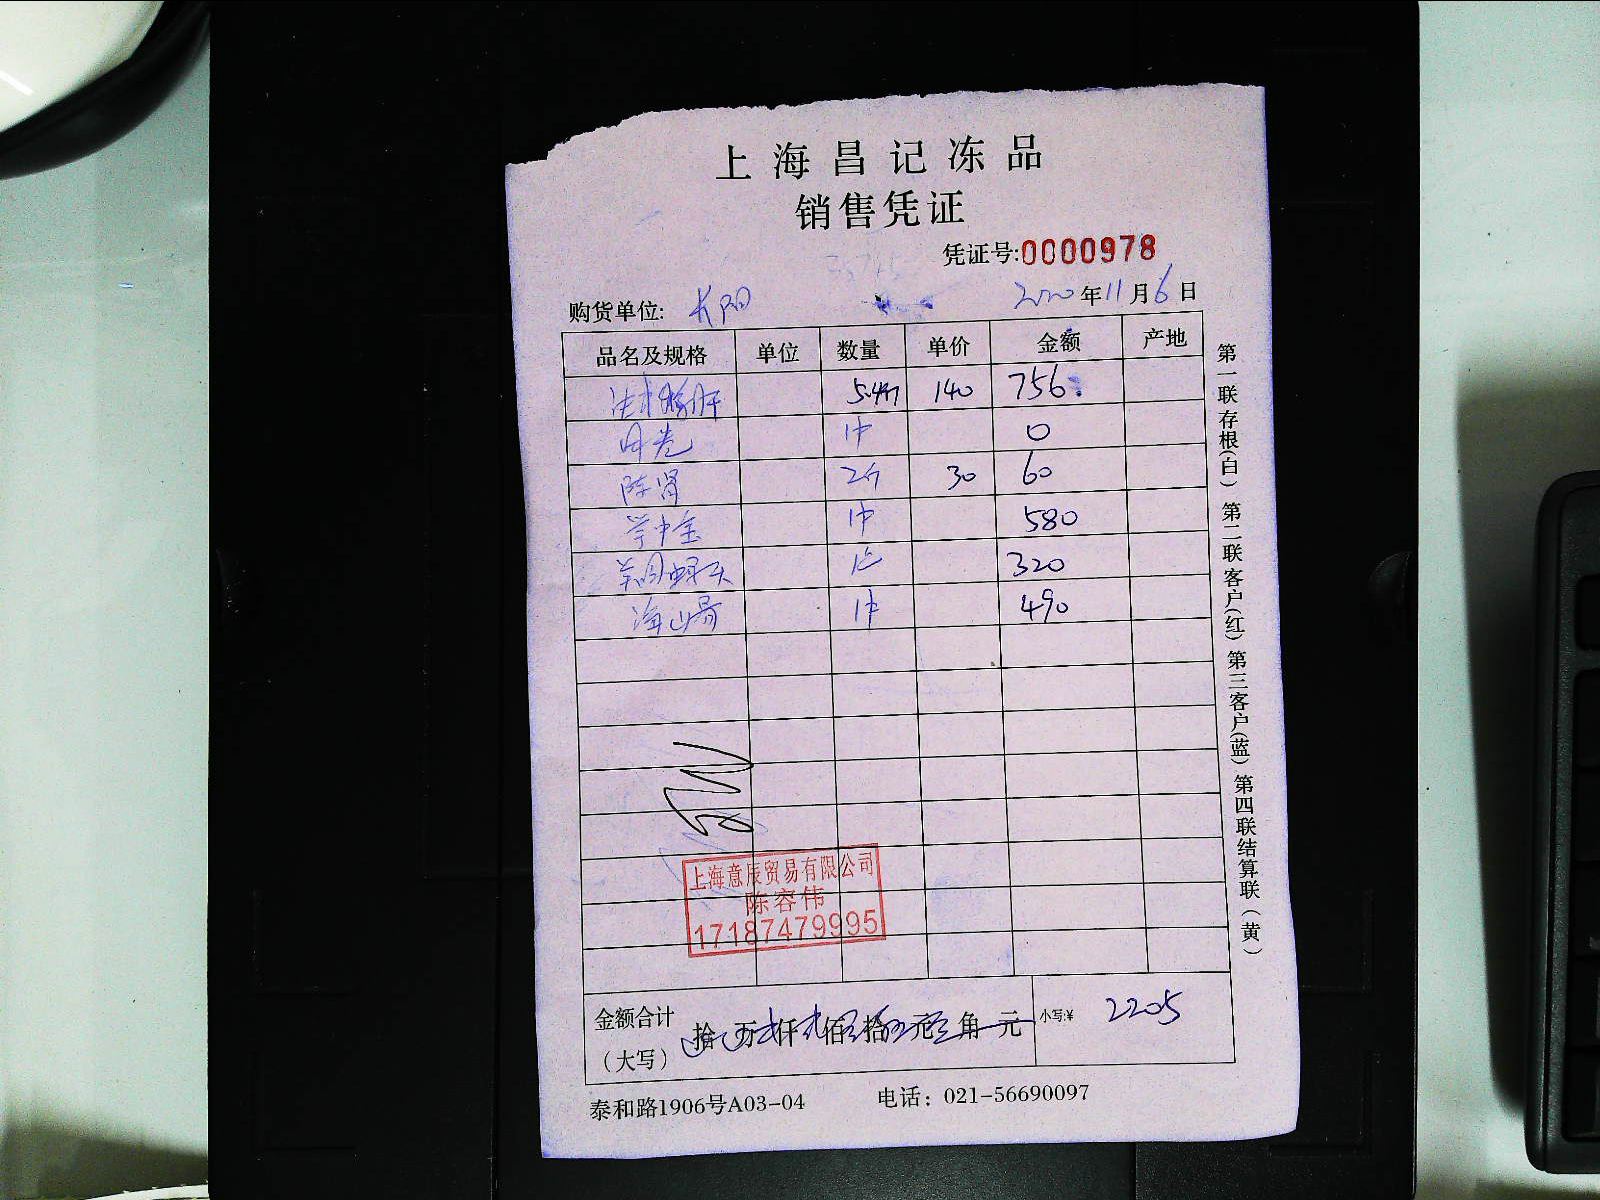 上海昌记冻品
销售凭证
凭证号:0000978
购货单位: 长阳 2020年11月6日
品名及规格 单位 数量 单价 金额 产地
5.4斤 140 756
1件 0
陈肾 2斤 30 60
1件 580
1 320
1件 490
上海意辰贸易有限公司
陈容伟
17187479995
金额合计
(大写) 拾 万 仟 佰 拾 元 角 元 小写:¥ 2205
泰和路1906号A03-04 电话: 021-56690097
第一联存根(白) 第二联客户(红) 第三客户(蓝) 第四联结算联(黄)